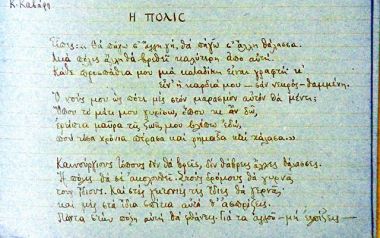 Κ. Καβάφη
Η ΠΟΛΙΣ
Είπες· θά πάγω σ' ἄλλη γῆ, θά πάγω σ' ἄλλη θάλασσα.
Μιά πόλις ἄλλη θά βρεθεῖ καλύτερη ἀπό αὐτή.
Κάθε προσπάθεια μου μιά καταδίκη εἶναι γραφτή κ'
εἶν' ἡ καρδιά μου — σάν νεκρός — θαμμένη.
Ὁ νοῦς μου ὡς πότε μές στον μαρασμόν αὐτόν θά μένει;
Ὅπου τό μάτι μου γυρίσω, ὅπου κι ἄν δῶ,
ἐρείπια μαῦρα τῆς ζωῆς μου βλέπω ἐδῶ,
πού τόσα χρόνια πέρασα καί ρήμαξα καί χάλασα
Καινούργιους τόπους δέν θά βρεῖς, δέν θἄβρεις ἄλλες θάλασσες.
Ἡ πόλις θά σέ ἀκολουθεῖ. Στούς δρόμους θά γυρνᾶς
τούς ἴδιους. Καί στές γειτονιές τές ἴδιες θά γερνᾶς·
καί μές στά ἴδια σπίτια αὐτά θ' ἀσπρίζεις.
Πάντα στήν πόλι αὐτή θά φθάνεις. Γιά τά ἀλλοῦ — μή ἐλπίζεις —